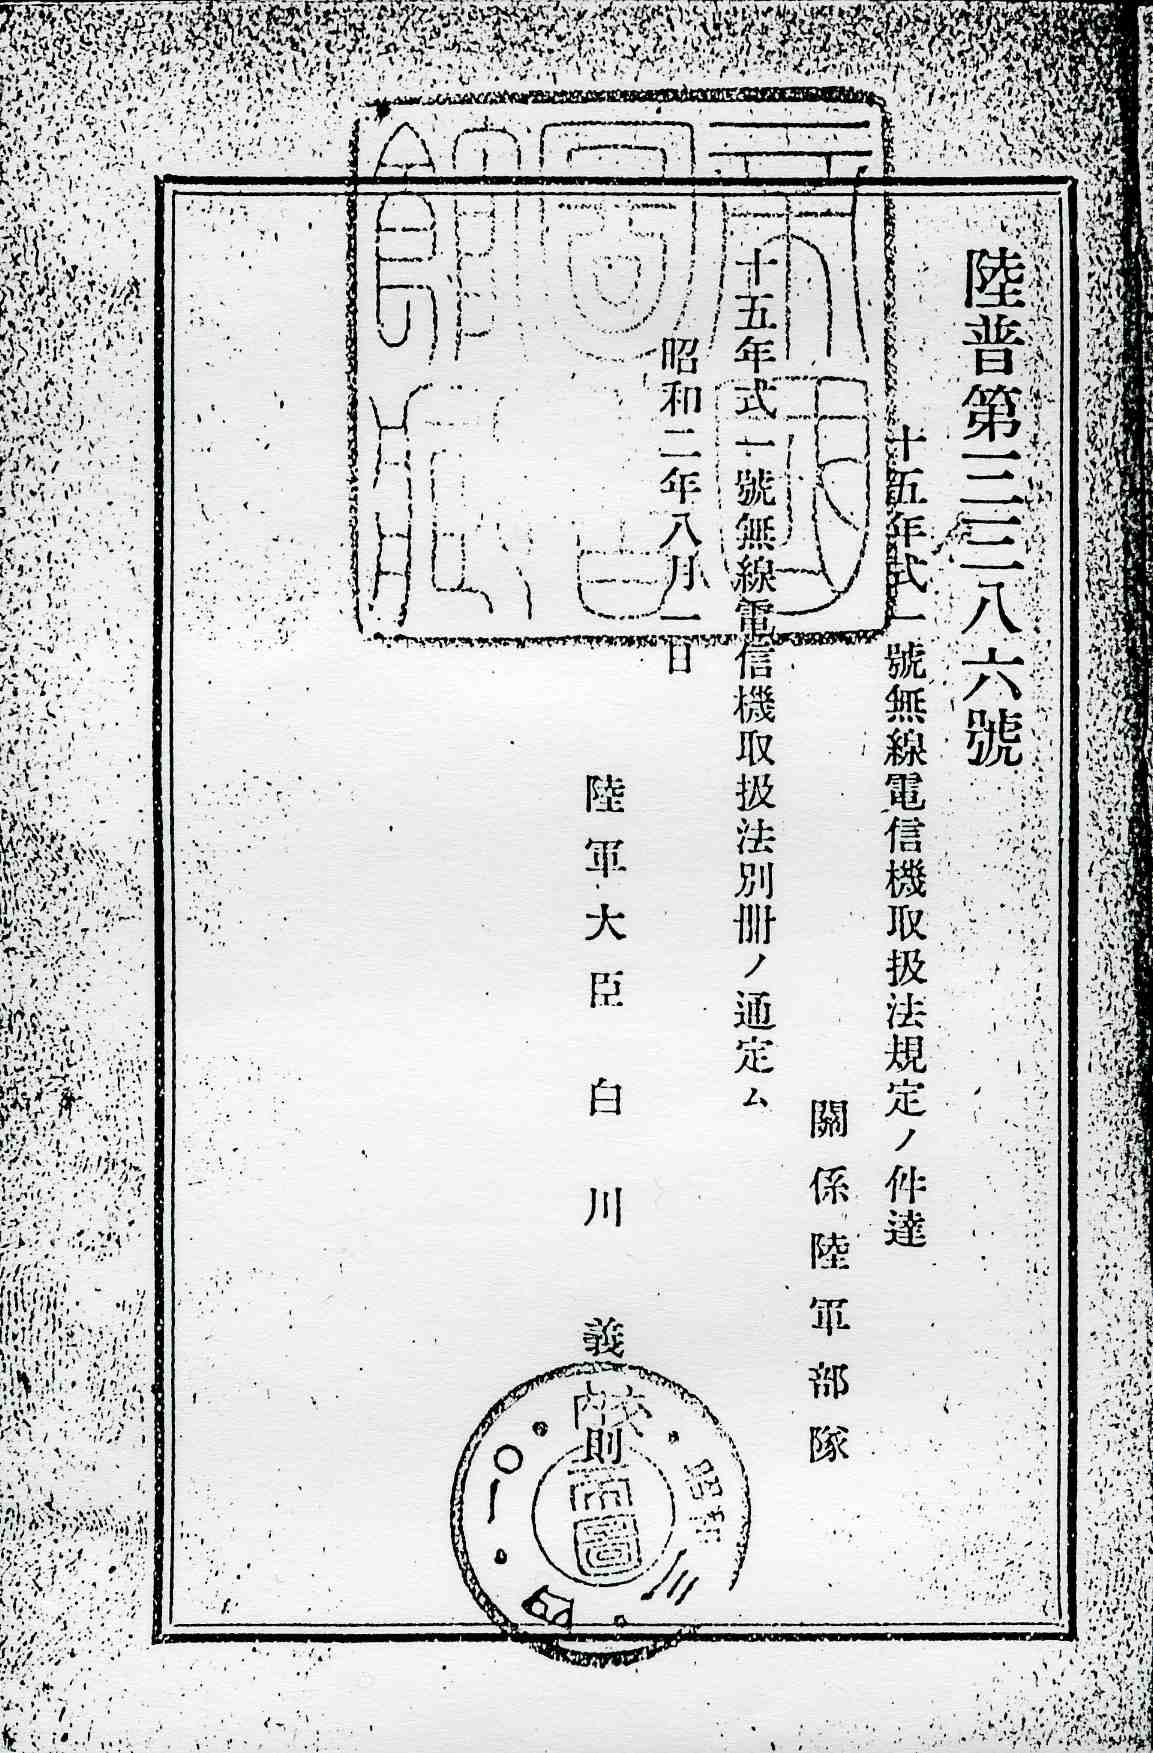 陸普第三三八六號
十五年式一號無線電信機取扱法規定ノ件達
關係陸軍部隊
十五年式一號無線電信機取扱法別冊ノ通定ム
昭和二年八月一日
陸軍大臣 白川義則
帝國圖書館藏
昭和三・四・一〇・内交
帝圖